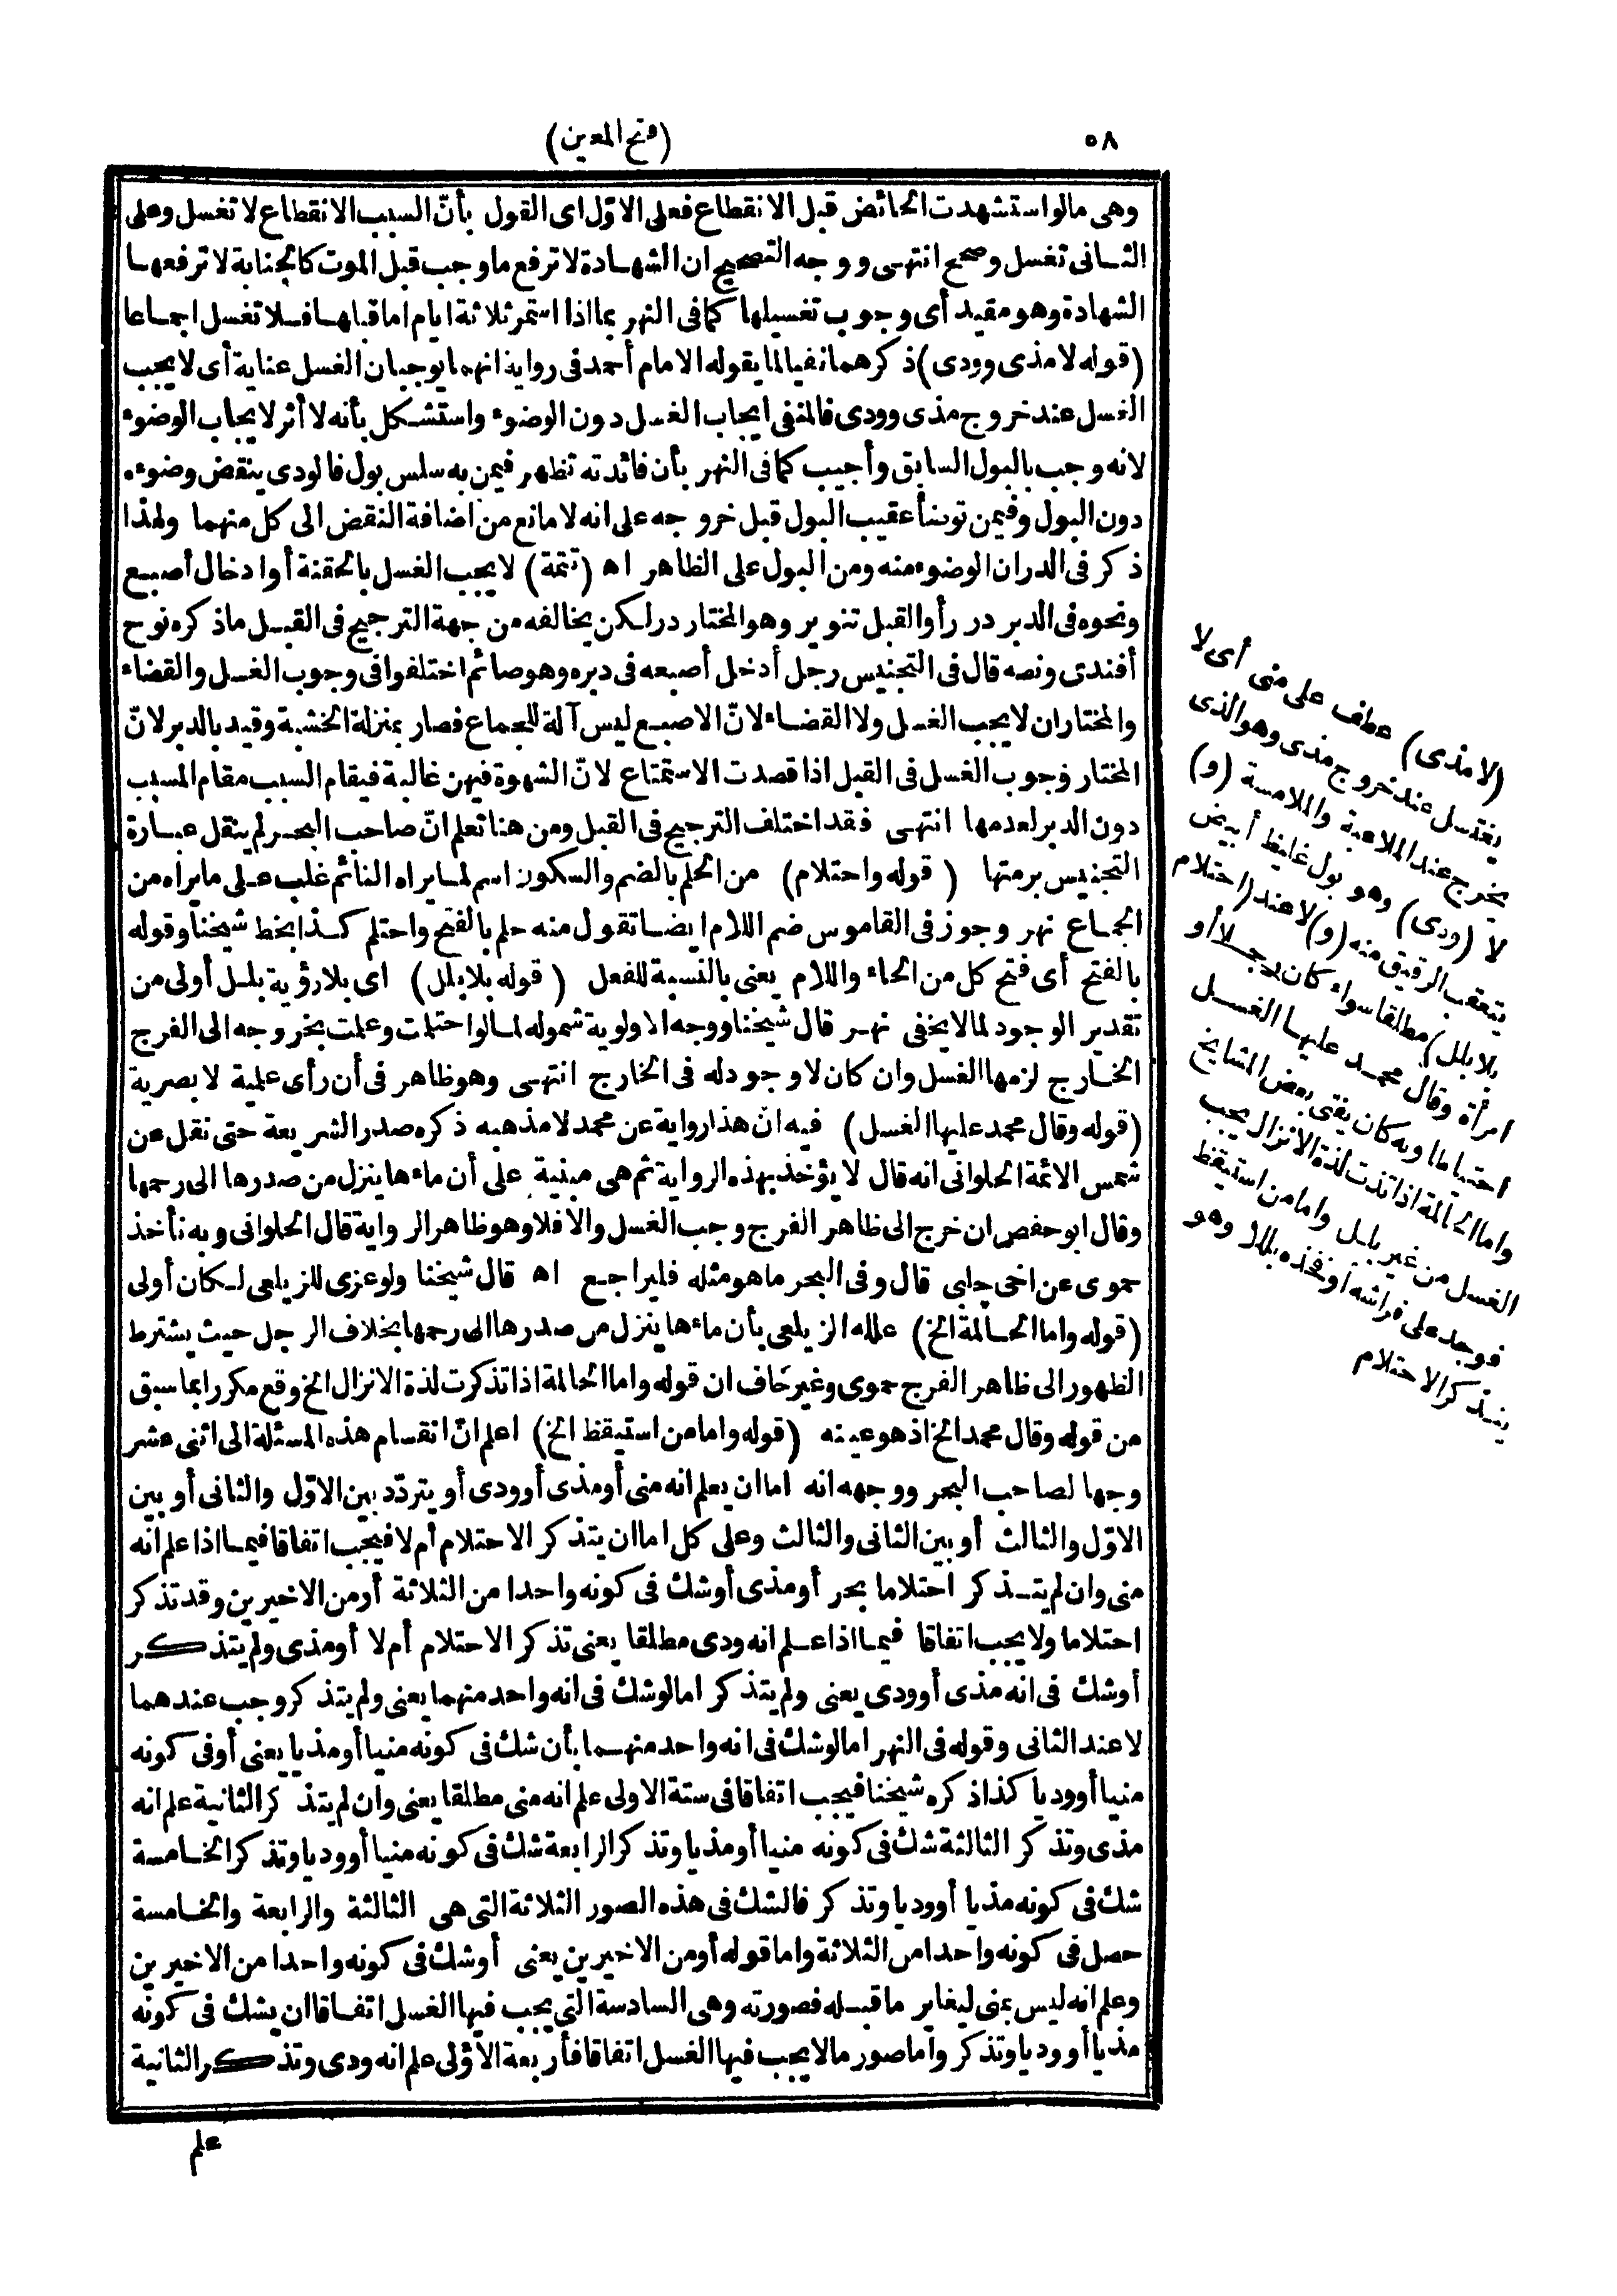 ٥٨
(فتح المعين)
وهى مالو استشهدت الحائض قبل الانقطاع فعلى الاوّل اى القول بأنّ السبب الانقطاع لا تغسل وعلى
الثانى تغسل وصحح انتهى ووجه التصحيح ان الشهادة لا ترفع ما وجب قبل الموت كالجنابة لا ترفعها
الشهادة وهو مقيد أى وجوب تغسيلها كما فى النهر بما اذا استمر ثلاثة ايام اما قبلها فلا تغسل اجماعا
(قوله لا مذى وودى) ذكرهما نفيا لما يقوله الامام أحمد فى رواية انهما يوجبان الغسل عناية أى لا يجب
الغسل عند خروج مذى وودى فالمنفى ايجاب الغسل دون الوضوء واستشكل بأنه لا أثر لايجاب الوضوء
لانه وجب بالبول السابق وأجيب كما فى النهر بأن فائدته تظهر فيمن به سلس بول فالودى ينقض وضوءه
دون البول وفيمن توضأ عقيب البول قبل خروجه على انه لا مانع من اضافة النقض الى كل منهما ولهذا
ذكر فى الدر ان الوضوء منه ومن البول على الظاهر اه (تتمة) لا يجب الغسل بالحقنة أو ادخال أصبع
ونحوه فى الدبر درر أو القبل تنوير وهو المختار در لكن يخالفه من جهة الترجيح فى القبل ما ذكره نوح
أفندى ونصه قال فى التجنيس رجل أدخل أصبعه فى دبره وهو صائم اختلفوا فى وجوب الغسل والقضاء
والمختار ان لا يجب الغسل ولا القضاء لانّ الاصبع ليس آلة للجماع فصار بمنزلة الخشبة وقيد بالدبر لانّ
المختار وجوب الغسل فى القبل اذا قصدت الاستمتاع لانّ الشهوة فيهن غالبة فيقام السبب مقام المسبب
دون الدبر لعدمها انتهى فقد اختلف الترجيح فى القبل ومن هنا تعلم انّ صاحب البحر لم ينقل عبارة
التجنيس برمتها (قوله واحتلام) من الحلم بالضم والسكون اسم لما يراه النائم غلب على ما يراه من
الجماع نهر وجوز فى القاموس ضم اللام ايضا تقول منه حلم بالفتح واحتلم كذا بخط شيخنا وقوله
بالفتح أى فتح كل من الحاء واللام يعنى بالنسبة للفعل (قوله بلا بلل) اى بلا رؤية بلل أولى من
تقدير الوجود لما لا يخفى نهر قال شيخنا ووجه الاولوية شموله لما لو احتلمت وعلمت بخروجه الى الفرج
الخارج لزمها الغسل وان كان لا وجود له فى الخارج انتهى وهو ظاهر فى أن رأى علمية لا بصرية
(قوله وقال محمد عليها الغسل) فيه انّ هذا رواية عن محمد لا مذهبه ذكره صدر الشريعة حتى نقل عن
شمس الائمة الحلوانى انه قال لا يؤخذ بهذه الرواية ثم هى مبنية على أن ماءها ينزل من صدرها الى رحمها
وقال ابو حفص ان خرج الى ظاهر الفرج وجب الغسل والا فلا وهو ظاهر الرواية قال الحلوانى وبه نأخذ
حموى عن اخى چلبى قال وفى البحر ما هو مثله فليراجع اه قال شيخنا ولو عزى للزيلعى لكان أولى
(قوله واما الحالمة الخ) علله الزيلعى بأن ماءها ينزل من صدرها الى رحمها بخلاف الرجل حيث يشترط
الظهور الى ظاهر الفرج حموى وغير خاف ان قوله واما الحالمة اذا تذكرت لذة الانزال الخ وقع مكررا بما سبق
من قوله وقال محمد الخ اذ هو عينه (قوله واما من استيقظ الخ) اعلم انّ انقسام هذه المسئلة الى اثنى عشر
وجها لصاحب البحر ووجهه انه اما ان يعلم انه منى أو مذى أو ودى أو يتردّد بين الاوّل والثانى أو بين
الاوّل والثالث أو بين الثانى والثالث وعلى كل اما ان يتذكر الاحتلام أم لا فيجب اتفاقا فيما اذا علم انه
منى وان لم يتذكر احتلاما بحر أو مذى أو شك فى كونه واحدا من الثلاثة أو من الاخيرين وقد تذكر
احتلاما ولا يجب اتفاقا فيما اذا علم انه ودى مطلقا يعنى تذكر الاحتلام أم لا أو مذى ولم يتذكر
أو شك فى انه مذى أو ودى يعنى ولم يتذكر اما لو شك فى انه واحد منهما يعنى ولم يتذكر وجب عندهما
لا عند الثانى وقوله فى النهر اما لو شك فى انه واحد منهما بأن شك فى كونه منيا أو مذيا يعنى أو فى كونه
منيا أو وديا كذا ذكره شيخنا فيجب اتفاقا فى ستة الاولى علم انه منى مطلقا يعنى وان لم يتذكر الثانية علم انه
مذى وتذكر الثالثة شك فى كونه منيا أو مذيا وتذكر الرابعة شك فى كونه منيا أو وديا وتذكر الخامسة
شك فى كونه مذيا أو وديا وتذكر فالشك فى هذه الصور الثلاثة التى هى الثالثة والرابعة والخامسة
حصل فى كونه واحدا من الثلاثة واما قوله أو من الاخيرين يعنى أو شك فى كونه واحدا من الاخيرين
وعلم انه ليس بمنى ليغاير ما قبله فصورته وهى السادسة التى يجب فيها الغسل اتفاقا ان يشك فى كونه
مذيا أو وديا وتذكر وأما صور ما لا يجب فيها الغسل اتفاقا فأربعة الاولى علم انه ودى وتذكر الثانية
علم
(لا مذى) عطف على منى أى لا
يغتسل عند خروج مذى وهو الذى
يخرج عند الملاعبة والملامسة (و)
لا (ودى) وهو بول غليظ أبيض
يتعقب الرقيق منه (و) لا عند (احتلام
بلا بلل) مطلقا سواء كان رجلا أو
امرأة وقال محمد عليها الغسل
احتياطا وبه كان يفتى بعض المشايخ
واما الحالمة اذا تذكرت لذة الانزال يجب
الغسل من غير بلل واما من استيقظ
فوجد على فراشه أو فخذه بللا وهو
يتذكر الاحتلام